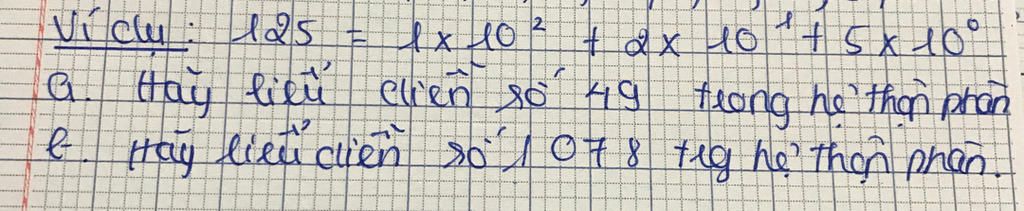 Ví dụ: 125 = 1 x 10² + 2 x 10¹ + 5 x 10⁰
a. Hãy biểu diễn số 49 trong hệ thập phân
b. Hãy biểu diễn số 1078 trg hệ thập phân.